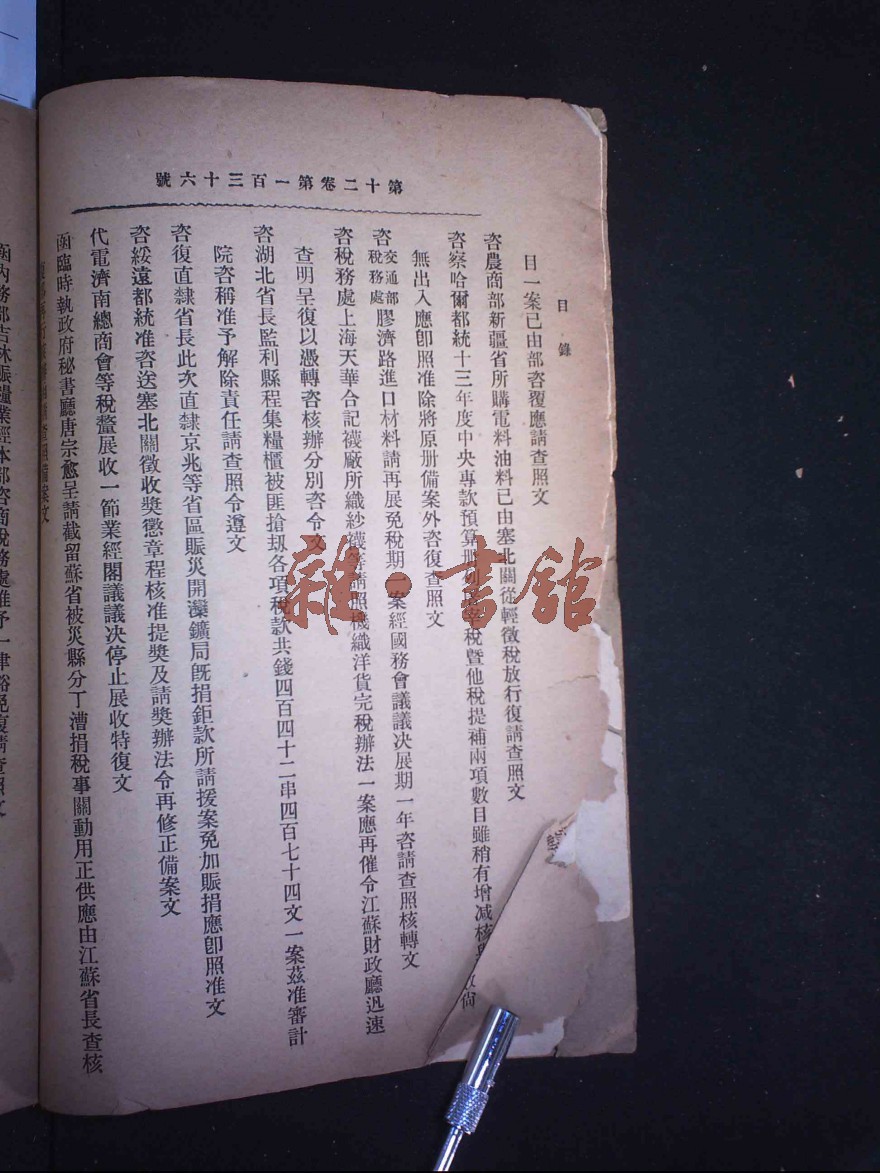 第十二卷第一百三十六號
目錄
日一案已由部咨覆應請查照文
咨農商部新疆省所購電料油料已由塞北關從輕徵稅放行復請查照文
咨察哈爾都統十三年度中央專款預算冊列 稅暨他稅提補兩項數目雖稍有增減核 尙
無出入應卽照准除將原册備案外咨復查照文
咨交通部稅務處膠濟路進口材料請再展免稅期一案經國務會議議決展期一年咨請查照核轉文
咨稅務處上海天華合記襪廠所織紗襪等請照機織洋貨完稅辦法一案應再催令江蘇財政廳迅速
查明呈復以憑轉咨核辦分別咨令文
咨湖北省長監利縣程集糧櫃被匪搶刼各項稅款共錢四百四十二串四百七十四文一案茲准審計
院咨稱准予解除責任請查照令遵文
咨復直隸省長此次直隸京兆等省區賑災開灤鑛局旣捐鉅款所請援案免加賑捐應卽照准文
咨綏遠都統准咨送塞北關徵收獎懲章程核准提獎及請獎辦法令再修正備案文
代電濟南總商會等稅釐展收一節業經閣議議決停止展收特復文
函臨時執政府秘書廳唐宗愈呈請截留蘇省被災縣分丁漕捐稅事關動用正供應由江蘇省長查核
查照備案文
函內務部吉林賑糧業經本部咨商稅務處准予一律豁免復請查照文
雜·書館